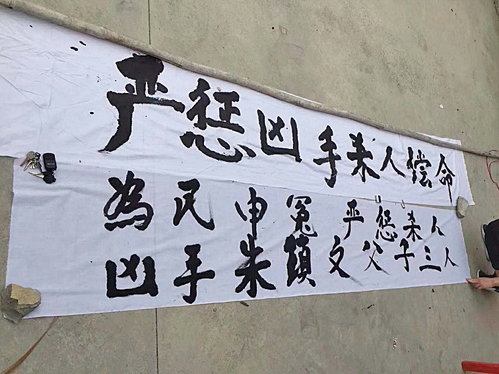 严惩凶手杀人偿命
為民申冤严惩杀人
凶手朱文父子三人